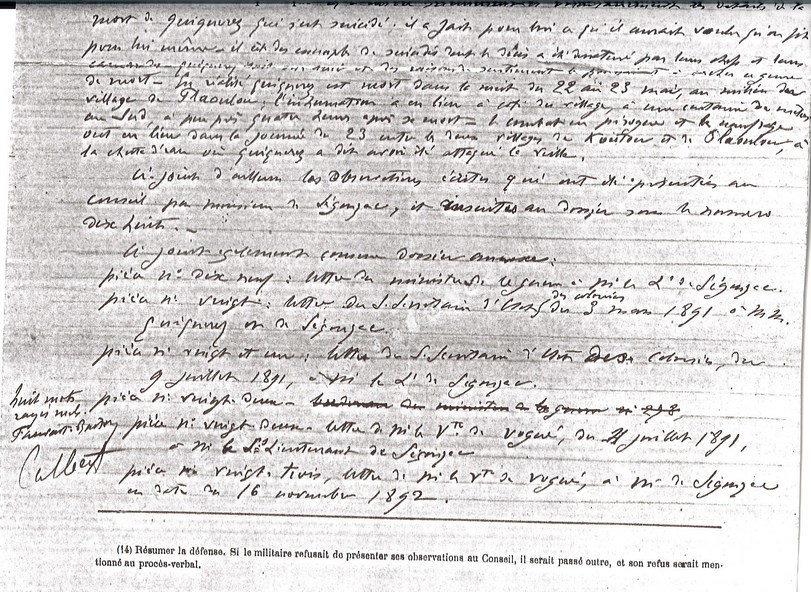 mort de Quiquerez qui s'est suicidé. il a fait pour lui ce qu'il aurait voulu qu'on fit
pour lui même - il est des exemples de suicidés dont le décès a été dénaturé par leurs chefs et leurs
camarades. Quiquerez
de mort - En réalité Quiquerez est mort dans la nuit du 22 au 23 mai, au milieu du
village de Plaoulou; l'inhumation a eu lieu à côté du village, à une centaine de mètres
au Sud, à peu près quatre heures après sa mort - le combat en pirogue et le naufrage
ont eu lieu dans la journée du 23 entre les deux villages de et de Plaoulou, à
la chute d'eau où Quiquerez a dit avoir été attaqué la veille.
Ci joint d'ailleurs les Observations écrites qui ont été présentées au
Conseil par monsieur de Ségonzac, et inscrites au dossier sous le numéro
dix huit. -
Ci joint également comme dossier annexe:
pièce n° dix neuf: lettre du ministre de la guerre à M. le Lt de Ségonzac.
pièce n° vingt: lettre du S. Secrétaire d'Etat des colonies du 3 mars 1891 à MM.
Quiquerez et de Ségonzac.
pièce n° vingt et un: lettre du S. Secrétaire d'Etat des Colonies, du
9 juillet 1891, à M. le Lt de Ségonzac.
huit mots
rayés nuls
pièce n° vingt deux -
pièce n° vingt deux - lettre de M. le Vte de Vogüé, du 21 juillet 1891,
à M. le S. Lieutenant de Ségonzac
pièce n° vingt trois, lettre de M. le Vte de Vogüé, à M. de Ségonzac
en date du 16 novembre 1892.
(14) Résumer la défense. Si le militaire refusait de présenter ses observations au Conseil, il serait passé outre, et son refus serait men-
tionné au procès-verbal.